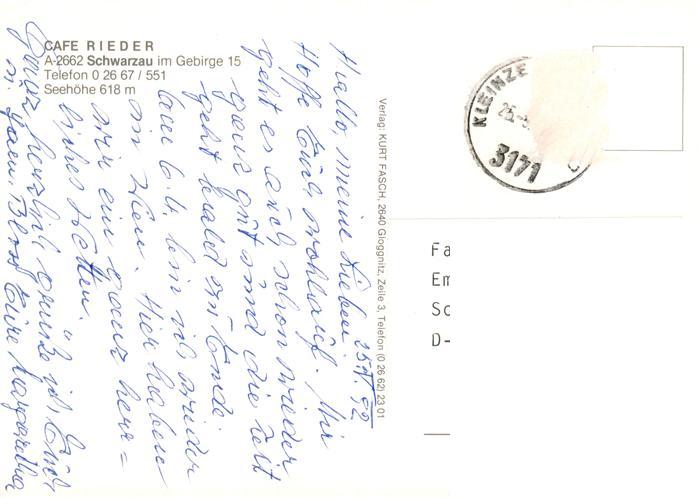 CAFE RIEDER
A-2662 Schwarzau im Gebirge 15
Telefon 0 26 67 / 551
Seehöhe 618 m
25.IV.92
Hallo, meine Lieben
Hoffe Eure wohlauf. Mir
geht es auch schon wieder
ganz gut und die Zeit
geht bald zu Ende
am 6.6. bin ich wieder
in Wien. Hier haben
wir ein ganz herr=
liches Wetter.
Ganz herzlich grüße ich Euch
Eure Margaretha
Verlag: KURT FASCH, 2640 Gloggnitz, Zeile 3, Telefon (0 26 62) 23 01
KLEINZE
3171
Fa
Em
Sc
D-